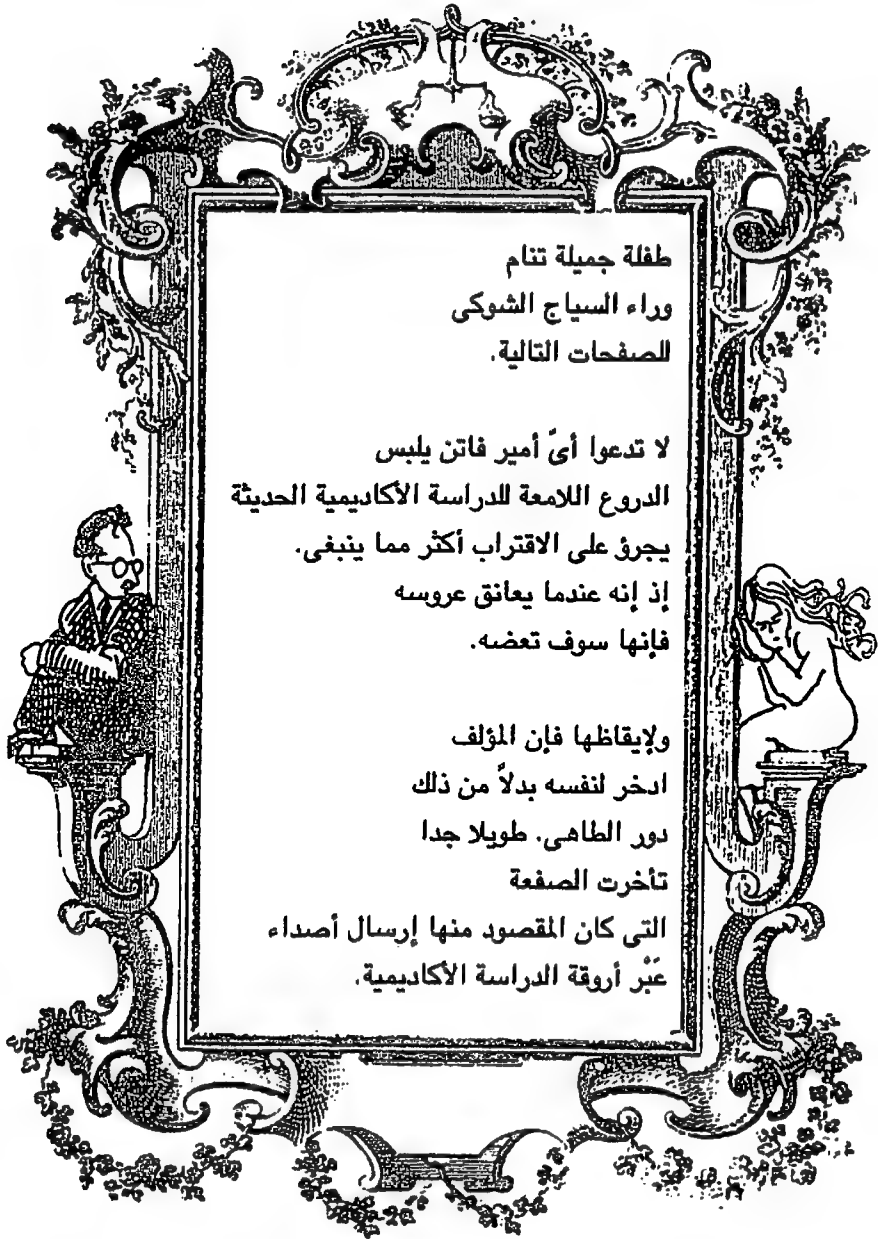 طفلة جميلة تنام
وراء السياج الشوكى
للصفحات التالية.
لا تدعوا أىّ أمير فاتن يلبس
الدروع اللامعة للدراسة الأكاديمية الحديثة
يجرؤ على الاقتراب أكثر مما ينبغى.
إذ إنه عندما يعانق عروسه
فإنها سوف تعضه.
ولإيقاظها فإن المؤلف
ادخر لنفسه بدلاً من ذلك
دور الطاهى. طويلا جدا
تأخرت الصفعة
التى كان المقصود منها إرسال أصداء
عَبْر أروقة الدراسة الأكاديمية.